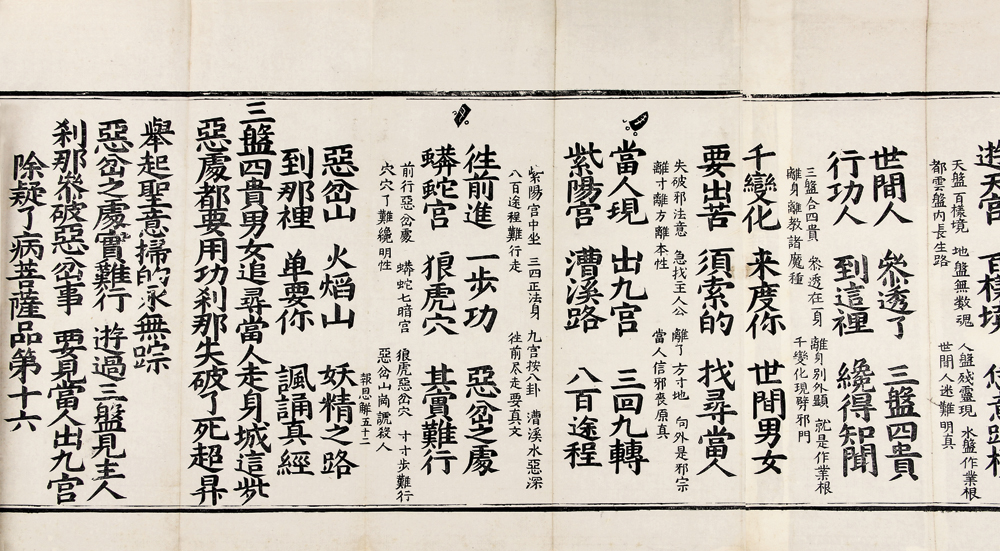 遊天宮 百樣境
天盤百樣境 地盤無數魂 人盤殘靈現 水盤作業根
都雲盤內長生路 世間人迷難明真
世間人 參透了 三盤四貴
行功人 到這裡 纔得知聞
三盤合四貴 參透在一身 離身別外顯 就是作業根
離身離教諸魔種 千變化現劈邪門
千變化 来度你 世間男女
要出苦 須索的 找尋當人
失破邪法意 急找主人公 離了方寸地 向外是邪宗
離寸離方離本性 當人信邪喪原真
當人現 出九宮 三回九轉
紫陽宮 漕溪路 八百途程
紫陽宮中坐 三四正法身 九宮按八卦 漕溪水惡深
八百途程難行走 往前尽走要真文
徃前進 一步功 惡岔之處
蟒蛇宮 狼虎穴 其實難行
前行惡岔處 蟒蛇七暗宮 狼虎惡岔穴 寸寸步難行
穴穴了難纔明性 惡岔山崗諕殺人
報恩解五十二
惡岔山 火焰山 妖精之路
到那裡 单要你 諷誦真經
三盤四貴男女追尋當人走身城這些
惡處都要用功刹那失破了死超昇
舉起聖意掃的永無踪
惡岔之處實難行 遊過三盤見主人
刹那參破惡岔事 要見當人出九宮
除疑了病菩薩品第十六